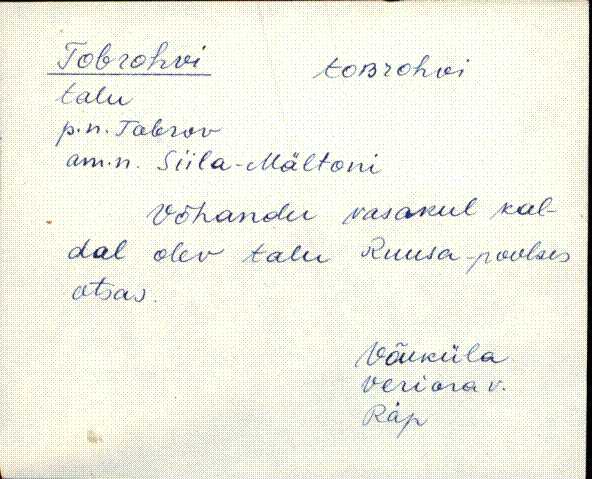 Tobrohvi toBrohvi
talu
p.n. Tobrov
am.n. Siila-Mältoni
Võhandu vasakul kal-
dal olev talu Ruusa-poolses
otsas.
Väiküla
Veriora v.
Räp